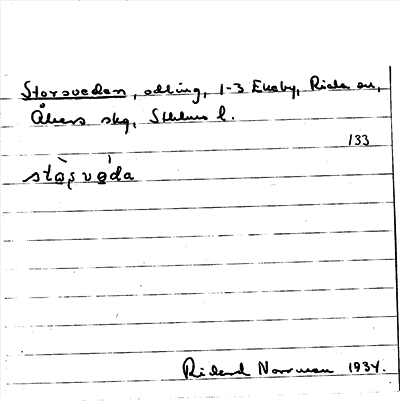 Storsveden, odling, 1-3 Ekeby, Riala sn,
Åkers skg, Sthlms l.
133
stòsvéda
Rikard Norrman 1934.